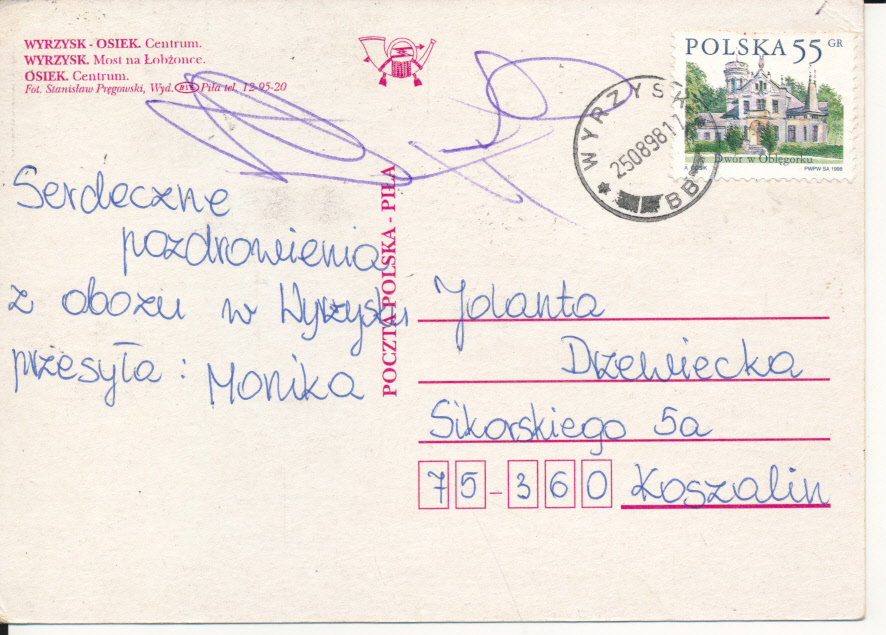 WYRZYSK - OSIEK. Centrum.
WYRZYSK. Most na Łobżonce.
OSIEK. Centrum.
Fot. Stanisław Pręgowski, Wyd. Piła tel. 12-95-20
POLSKA 55 GR
Dwór w Oblęgorku
PWPW SA 1998
WYRZYSK
25089817
BB
Serdeczne
pozdrowienia
z obozu w Wyrzysku
przesyła:
Monika
POCZTA POLSKA - PIŁA
Jolanta
Drzewiecka
Sikorskiego 5a
75-360 Koszalin